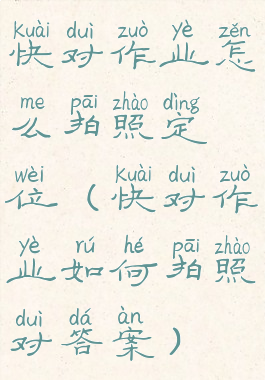 kuài duì zuò yè zěn
快对作业怎
me pāi zhào dìng
么拍照定
wèi kuài duì zuò
位（快对作
yè rú hé pāi zhào
业如何拍照
duì dá àn
对答案）